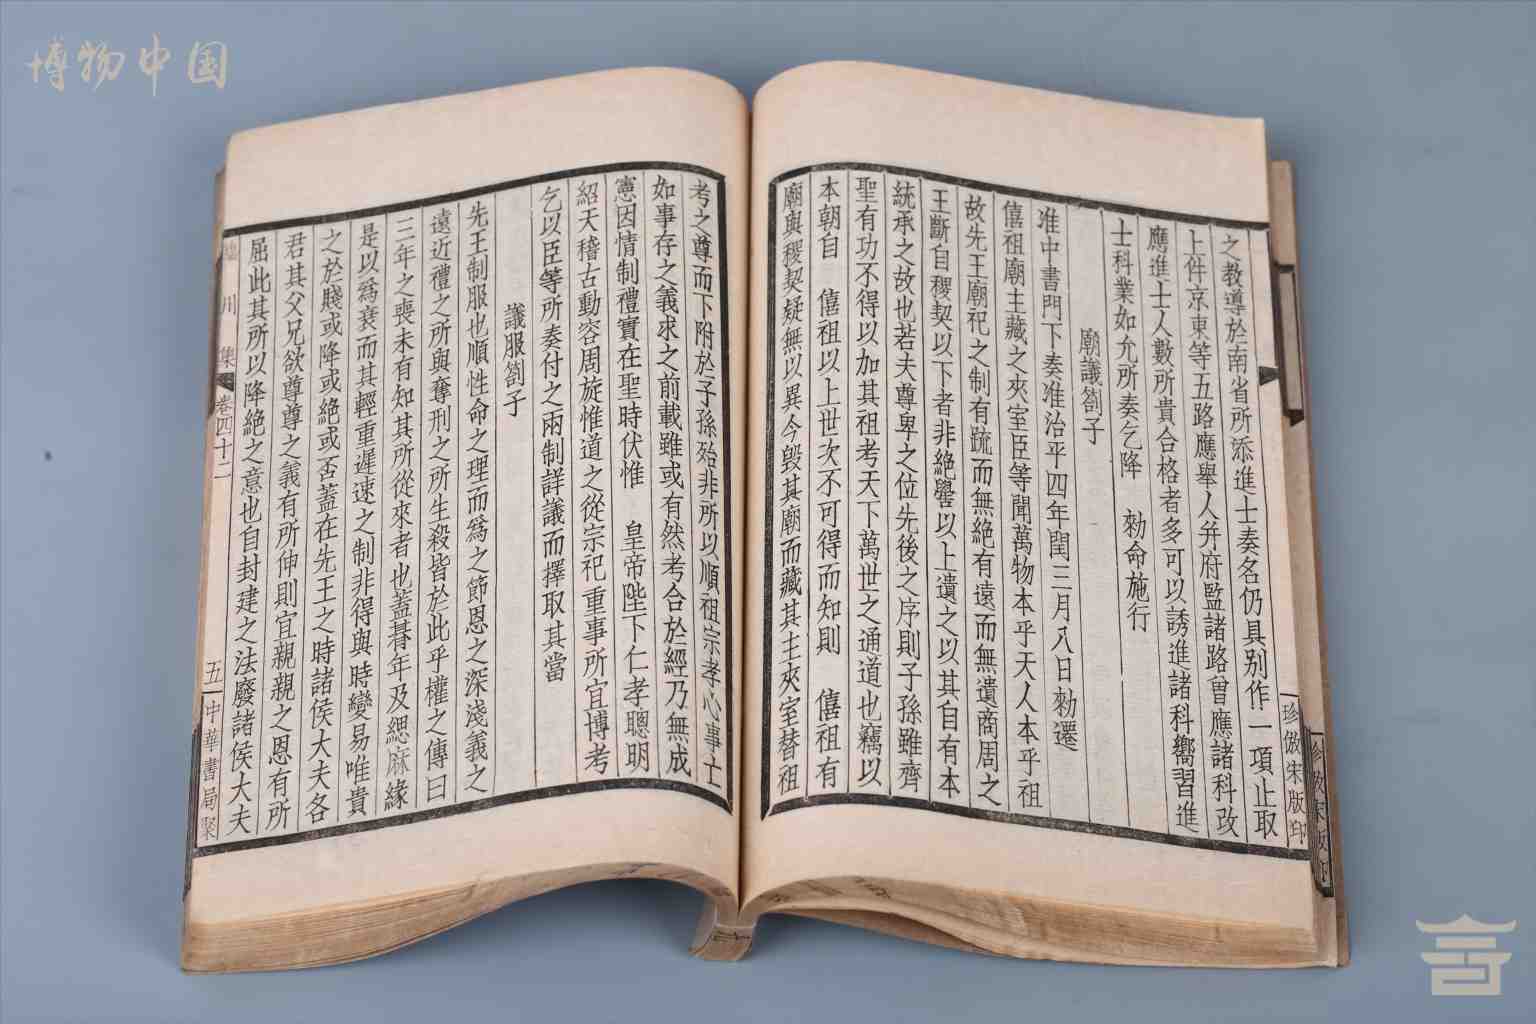 博物中国
之教導於南省所添進士奏名仍具別作一項止取
上件京東等五路應舉人幷府監諸路曾應諸科改
應進士人數所貴合格者多可以誘進諸科嚮習進
士科業如允所奏乞降 勑命施行
廟議劄子
准中書門下奏准治平四年閏三月八日勑遷
僖祖廟主藏之夾室臣等聞萬物本乎天人本乎祖
故先王廟祀之制有疏而無絕有遠而無遺商周之
王斷自稷契以下者非絕嚳以上遺之以其自有本
統承之故也若夫尊卑之位先後之序則子孫雖齊
聖有功不得以加其祖考天下萬世之通道也竊以
本朝自 僖祖以上世次不可得而知則 僖祖有
廟與稷契疑無以異今毀其廟而藏其主夾室替祖
考之尊而下附於子孫殆非所以順祖宗孝心事亡
如事存之義求之前載雖或有然考合於經乃無成
憲因情制禮實在聖時伏惟 皇帝陛下仁孝聰明
紹天稽古動容周旋惟道之從宗祀重事所宜博考
乞以臣等所奏付之兩制詳議而擇取其當
議服劄子
先王制服也順性命之理而爲之節恩之深淺義之
遠近禮之所與奪刑之所生殺皆於此乎權之傳曰
三年之喪未有知其所從來者也蓋朞年及緦麻緣
是以爲衰而其輕重遲速之制非得與時變易唯貴
之於賤或降或絕或否蓋在先王之時諸侯大夫各
君其父兄欲尊尊之義有所伸則宜親親之恩有所
屈此其所以降絕之意也自封建之法廢諸侯大夫
臨川集 卷四十二
五 中華書局聚
珍倣宋版印
珍倣宋版印